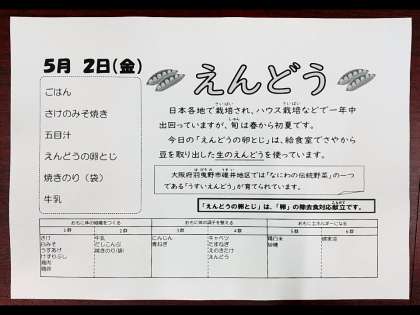 5月 2日(金)
えんどう
ごはん
さけのみそ焼き
五目汁
えんどうの卵とじ
焼きのり(袋)
牛乳
日本各地で栽培され、ハウス栽培などで一年中
出回っていますが、旬は春から初夏です。
今日の「えんどうの卵とじ」は、給食室でさやから
豆を取り出した生のえんどうを使っています。
大阪府羽曳野市碓井地区では「なにわの伝統野菜」の一つ
である「うすいえんどう」が育てられています。
「えんどうの卵とじ」は、「卵」の除去食対応献立です。
おもに体の組織をつくる
おもに体の調子を整える
おもにエネルギーになる
1群 2群 3群 4群 5群 6群
さけ 牛乳 にんじん キャベツ 精白米
白みそ だしこんぶ 青ねぎ たまねぎ 砂糖
うすあげ 焼きのり(袋) えのきたけ
けずりぶし えんどう
鶏肉
鶏卵